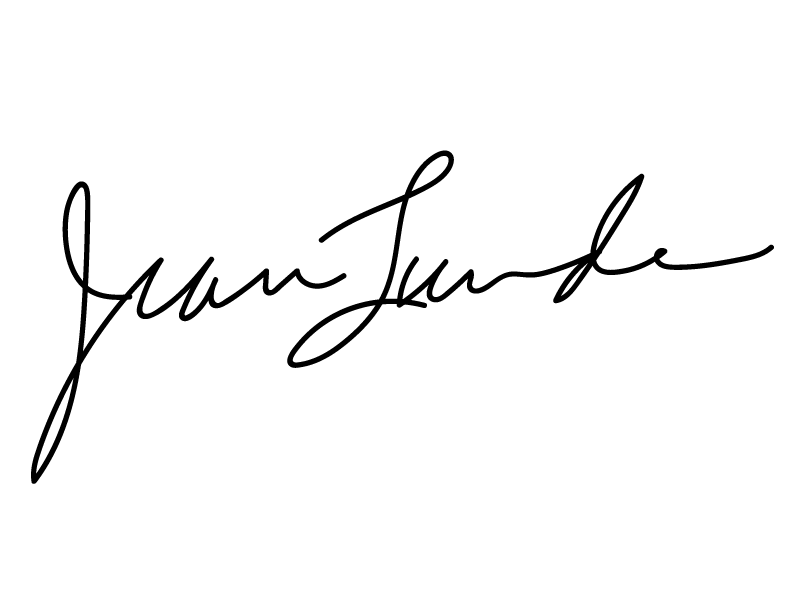 Jean Lunde